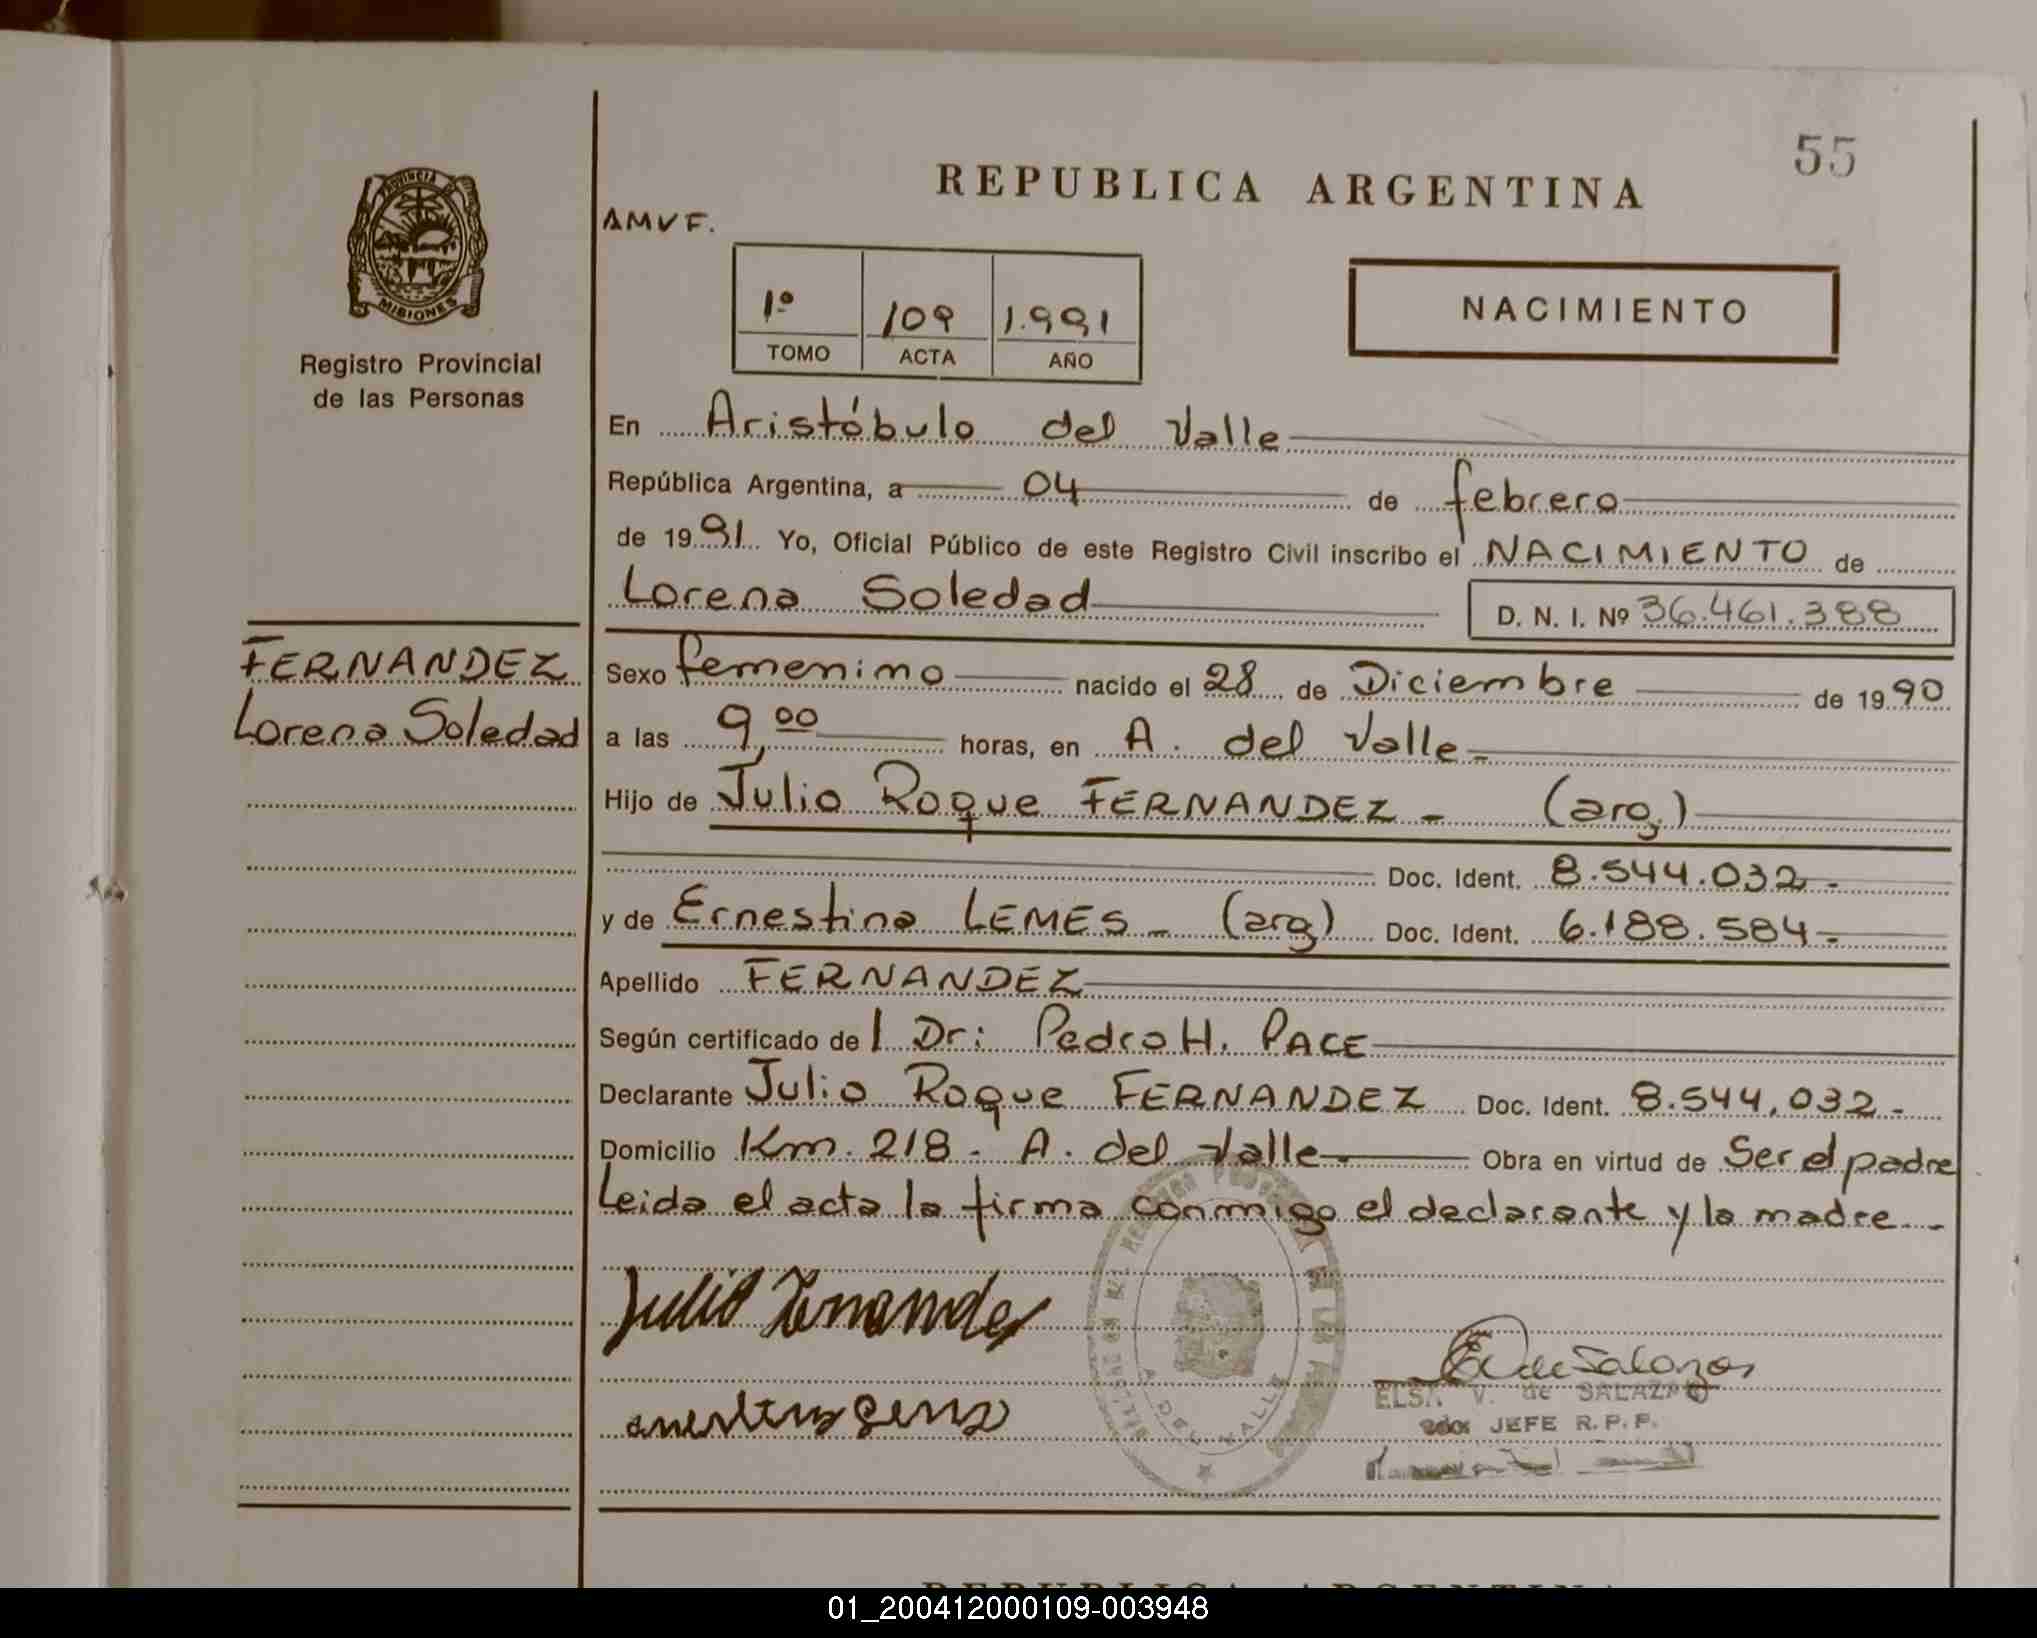 55
REPUBLICA ARGENTINA
AMVF.
PROVINCIA DE
MISIONES
Registro Provincial
de las Personas
1º 109 1.991
TOMO ACTA AÑO
NACIMIENTO
En Aristóbulo del Valle
República Argentina, a 04 de febrero
de 1991 Yo, Oficial Público de este Registro Civil inscribo el NACIMIENTO de
Lorena Soledad D. N. I. Nº 36.461.388
FERNANDEZ
Lorena Soledad
Sexo femenino nacido el 28 de Diciembre de 1990
a las 9,00 horas, en A. del Valle
Hijo de Julio Roque FERNANDEZ - (arg.)
Doc. Ident. 8.544.032.-
y de Ernestina LEMES - (arg) Doc. Ident. 6.188.584.-
Apellido FERNANDEZ
Según certificado de l Dr: Pedro H. PACE
Declarante Julio Roque FERNANDEZ Doc. Ident. 8.544.032.-
Domicilio Km. 218 - A. del Valle.- Obra en virtud de Ser el padre
Leida el acta la firma conmigo el declarante y la madre.-
Julio Fernandez
A. DEL VALLE
E V de Salazar
ELSA V. de SALAZAR
JEFE R.P.P.
REPUBLICA ARGENTINA
01_200412000109-003948